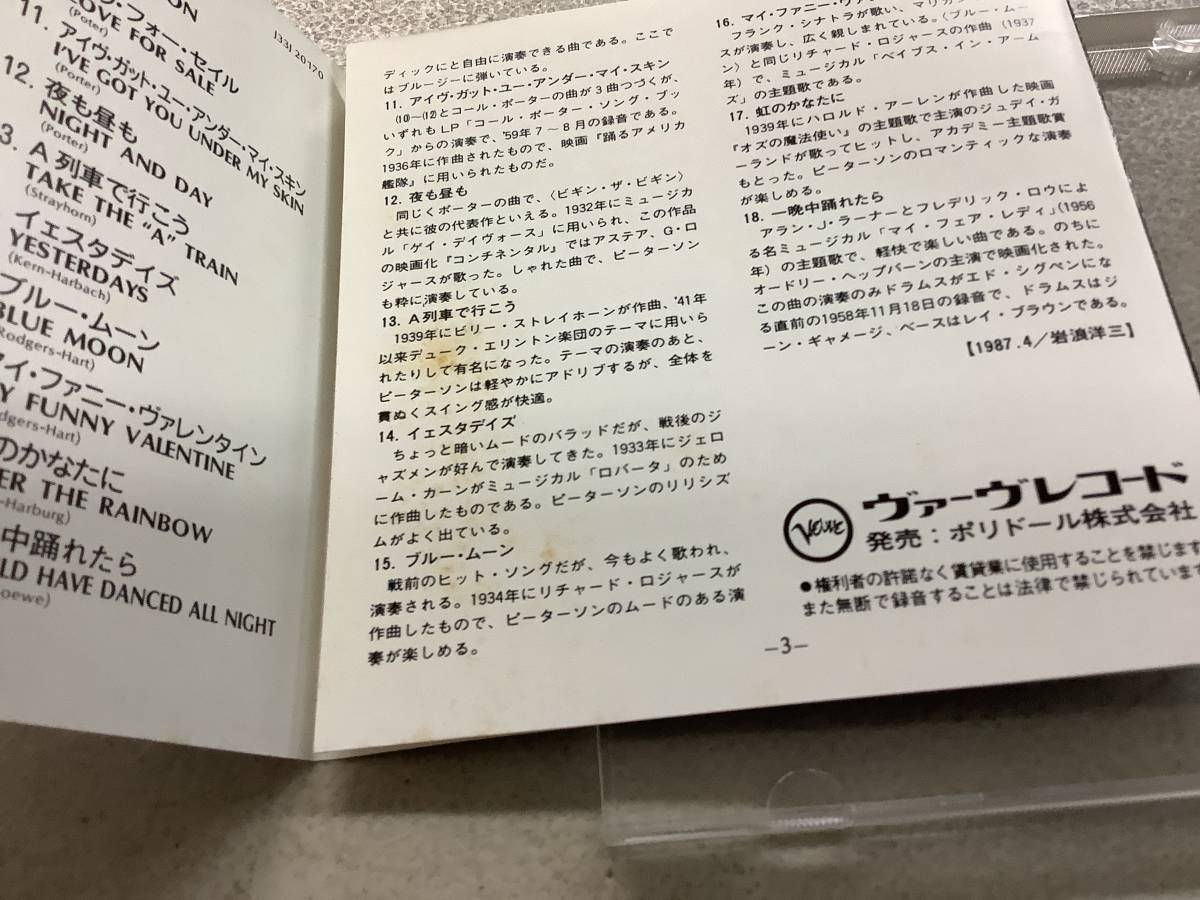 J33J 20170
ON
・フォー・セイル
LOVE FOR SALE
(Poter)
11. アイヴ・ガット・ユー・アンダー・マイ・スキン
I'VE GOT YOU UNDER MY SKIN
(Porter)
12. 夜も昼も
NIGHT AND DAY
(Porter)
3. A列車で行こう
TAKE THE “A” TRAIN
(Strayhorn)
イエスタデイズ
YESTERDAYS
(Kern-Harbach)
ブルー・ムーン
BLUE MOON
Rodgers-Hart)
イ・ファニー・ヴァレンタイン
Y FUNNY VALENTINE
dgers-Hart)
のかなたに
ER THE RAINBOW
-Harburg)
中踊れたら
LD HAVE DANCED ALL NIGHT
oewe)
ディックにと自由に演奏できる曲である。ここで
はブルージーに弾いている。
11. アイヴ・ガット・ユー・アンダー・マイ・スキン
(10)～(12)とコール・ポーターの曲が3曲つづくが、
いずれもLP「コール・ポーター・ソング・ブッ
ク」からの演奏で、'59年7～8月の録音である。
1936年に作曲されたもので、映画『踊るアメリカ
艦隊』に用いられたものだ。
12. 夜も昼も
同じくポーターの曲で、〈ビギン・ザ・ビギン〉
と共に彼の代表作といえる。1932年にミュージカ
ル「ゲイ・デイヴォース」に用いられ、この作品
の映画化『コンチネンタル』ではアステア、G・ロ
ジャースが歌った。しゃれた曲で、ピーターソン
も粋に演奏している。
13. A列車で行こう
1939年にビリー・ストレイホーンが作曲、'41年
以来デューク・エリントン楽団のテーマに用いら
れたりして有名になった。テーマの演奏のあと、
ピーターソンは軽やかにアドリブするが、全体を
貫ぬくスイング感が快適。
14. イエスタデイズ
ちょっと暗いムードのバラッドだが、戦後のジ
ャズメンが好んで演奏してきた。1933年にジェロ
ーム・カーンがミュージカル「ロバータ」のため
に作曲したものである。ピーターソンのリリシズ
ムがよく出ている。
15. ブルー・ムーン
戦前のヒット・ソングだが、今もよく歌われ、
演奏される。1934年にリチャード・ロジャースが
作曲したもので、ピーターソンのムードのある演
奏が楽しめる。
16. マイ・ファニー・ヴァ
フランク・シナトラが歌い、マリガン
スが演奏し、広く親しまれている。〈ブルー・ムー
ン〉と同じリチャード・ロジャースの作曲（1937
年）で、ミュージカル「ベイブス・イン・アーム
ズ」の主題歌である。
17. 虹のかなたに
1939年にハロルド・アーレンが作曲した映画
『オズの魔法使い』の主題歌で主演のジュディ・ガ
ーランドが歌ってヒットし、アカデミー主題歌賞
もとった。ピーターソンのロマンティックな演奏
が楽しめる。
18. 一晩中踊れたら
アラン・J・ラーナーとフレデリック・ロウによ
る名ミュージカル「マイ・フェア・レディ」(1956
年）の主題歌で、軽快で楽しい曲である。のちに
オードリー・ヘップバーンの主演で映画化された。
この曲の演奏のみドラムスがエド・シグペンにな
る直前の1958年11月18日の録音で、ドラムスはジ
ーン・ギャメージ、ベースはレイ・ブラウンである。
【1987.4／岩浪洋三】
Verve
ヴァーヴレコード
発売：ポリドール株式会社
●権利者の許諾なく賃貸業に使用することを禁じます
また無断で録音することは法律で禁じられています
—3—